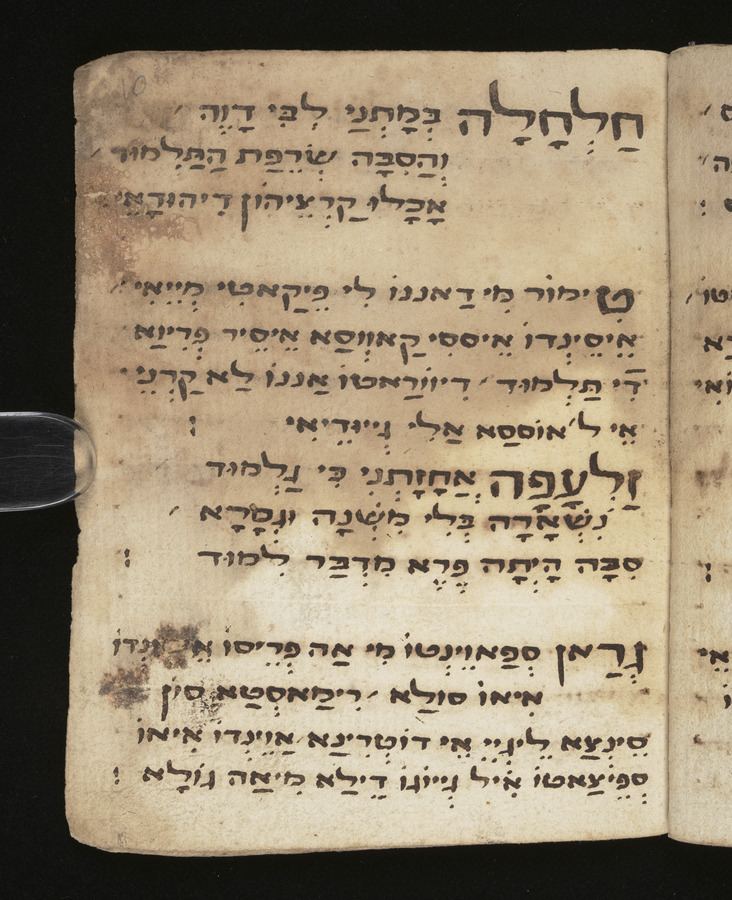 חַלְחָלָה בְּמָתְנַי לִבִּי דָוֶה
וְהַסִבָּה שְׂרֵפַת הַתַּלְמוּד
אָכָלוּ קַרְצֵיהוֹן דִיהוּדָאֵי
טִימוֹר מִי דַאננוֹ לִי פֵיקַאטִי מְיֵיאִי
אֵיסֵינְדוֹ אֵיססִי קַאווְסַא אֵיסֵיר פְּרִיוַא
דִי תַּלְמוּד דִיווֹרַאטוֹ אַננוֹ לַא קַרְנֵי
אֵי ל׳אוֹססַא אַלִי גְיוּדֵיאִי :
זַלְעָפָה אֲחָזָתְנִי כִּי גַלְמוּד
נִשְׁאָרָה בְּלִי מִשְׁנָה וּגְמָרָא
סִבָּה הָיְתָה פֶּרֶא מִדְבַּר לִמּוּד :
גְרַאן סְפַּאוֵינְטוֹ מִי אַה פְּרֵיסוֹ
אִיאוֹ סוֹלַא רִימַאסְטַא סוֹן
סֵינְצַא לֵיגְיֵי אֵי דוֹטְרִינַא אַוֵינְדוֹ אִיאוֹ
סְפֵּיצַאטוֹ אִיל גְיוֹגוֹ דֵילַא מִיאַה גוֹלַא :
10